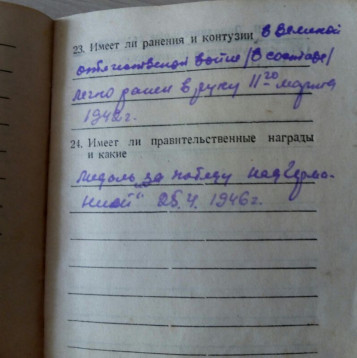 23. Имеет ли ранения и контузии в Великой
отечественной войне /в составе/
легко ранен в руку 11го марта
194 г.
24. Имеет ли правительственные награды
и какие
медаль „за победу над Герма-
нией" 25.4.1946г.